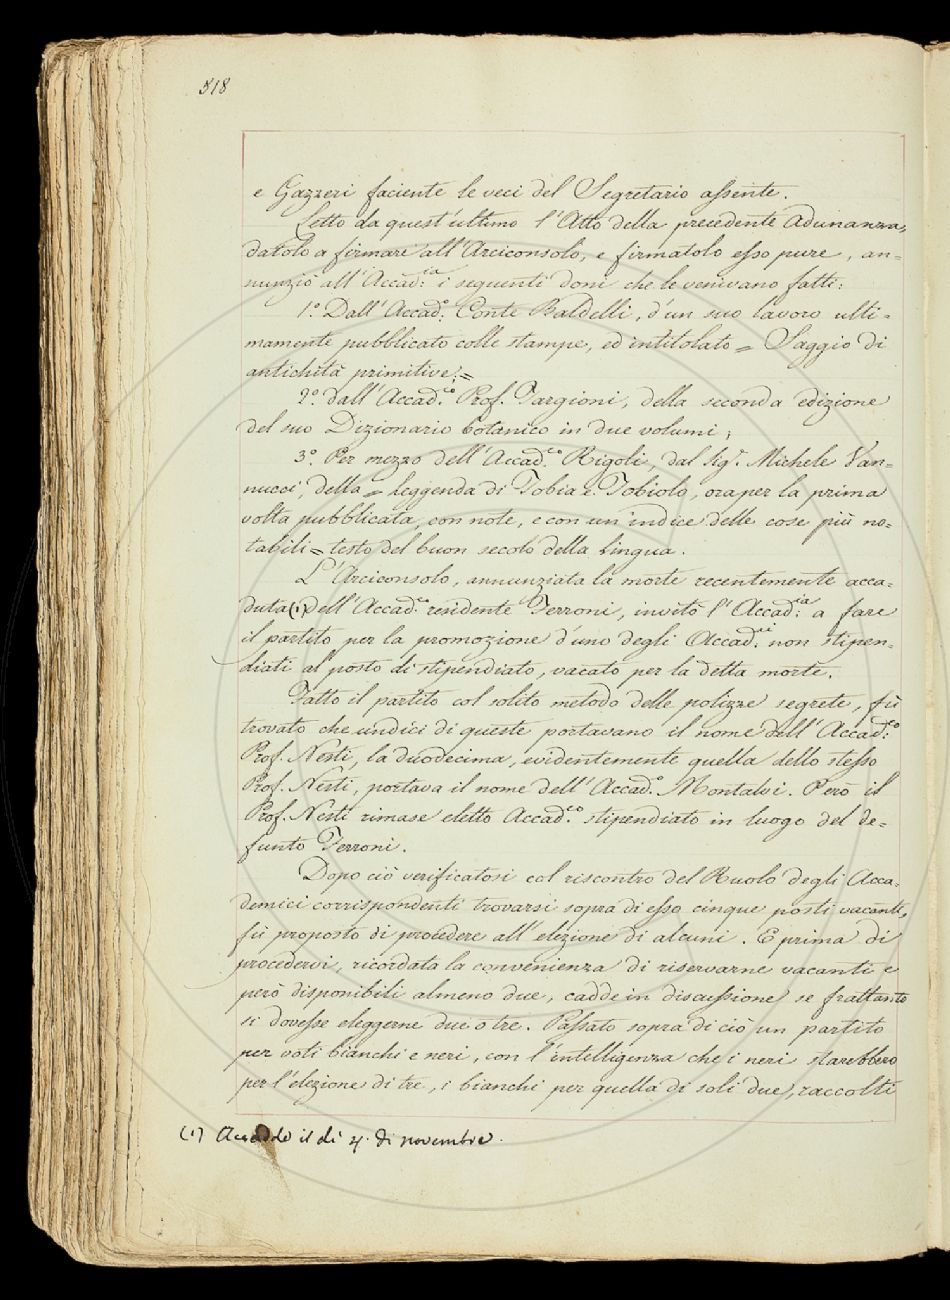 318
e Gazzeri faciente le veci del Segretario assente.
Letto da quest'ultimo l'Atto della precedente Adunanza,
datolo a firmare all'Arciconsolo, e firmatolo esso pure, an=
nunziò all'Accad:ia i seguenti doni che le venivano fatti:
1.° Dall'Accad:° Conte Baldelli, d'un suo lavoro ulti=
mamente pubblicato colle stampe, ed intitolato = Saggio di
antichità primitive;=
2.° dall'Accad.co Prof. Targioni, della seconda edizione
del suo Dizionario botanico in due volumi;
3.° Per mezzo dell'Accad.co Rigoli, dal Sig.r Michele Van=
nucci, della = leggenda di Tobia e Tobiolo, ora per la prima
volta pubblicata, con note, e con un indice delle cose più no=
tabili = testo del buon secolo della lingua.
L'Arciconsolo, annunziata la morte recentemente acca=
duta (1) dell'Accad.co residente Ferroni, invitò l'Accad:ia a fare
il partito per la promozione d'uno degli Accad:ci non stipen=
diati al posto di stipendiato, vacato per la detta morte.
Fatto il partito col solito metodo delle polizze segrete, fù
trovato che undici di queste portavano il nome dell'Accad:co
Prof. Nesti, la duodecima, evidentemente quella dello stesso
Prof. Nesti, portava il nome dell'Accad.° Montalvi. Però il
Prof. Nesti rimase eletto Accad.co stipendiato in luogo del de=
funto Ferroni.
Dopo ciò verificatosi col riscontro del Ruolo degli Acca=
demici corrispondenti trovarsi sopra di esso cinque posti vacanti,
fù proposto di procedere all'elezione di alcuni. E prima di
procedervi, ricordata la convenienza di riservarne vacanti e
però disponibili almeno due, cadde in discussione se frattanto
si dovesse eleggerne due o tre. Passato sopra di ciò un partito
per voti bianchi e neri, con l'intelligenza che i neri starebbero
per l'elezione di tre, i bianchi per quella di soli due, raccolti
(1) Accaddo il dì 4. di novembre.